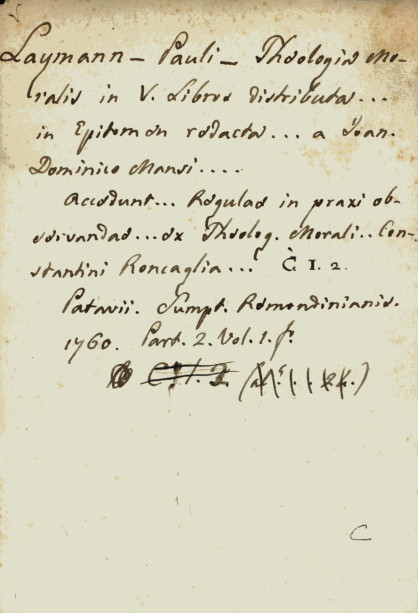 Laymann – Pauli – Theologia Mo-
ralis in V. Libros distributa...
in Epitomen redacta... a Joan.
Dominico Mansi....
Accedunt... Regulae in praxi ob-
servandae... ex Theolog. Morali.. Con-
stantini Roncaglia... C 1. 2.
Patavii. Sumpt. Remondinianis.
1760. Part. 2. Vol. 1. fo.
C